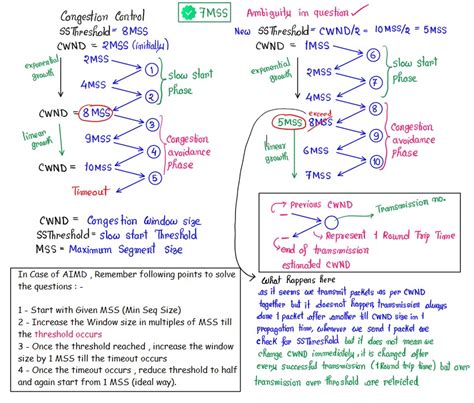 Congestion Control
SSThreshold = 8MSS
CWND = 2MSS (initially)
exponential growth
2MSS
1
4MSS
2
slow start phase
CWND = 8MSS
3
linear growth
9MSS
4
Congestion avoidance phase
CWND = 10MSS
5
Timeout
CWND = Congestion Window size
SSThreshold = slow start Threshold
MSS = Maximum Segment Size
7MSS
Ambiguity in question
New SSThreshold = CWND/2 = 10MSS/2 = 5MSS
CWND = 1MSS
6
exponential growth
2MSS
7
slow start phase
4MSS
8
exceed
5MSS 8MSS
9
linear growth
6MSS
10
Congestion avoidance phase
7MSS
Previous CWND
Transmission no.
Represent 1 Round Trip Time
end of transmission
estimated CWND
In Case of AIMD , Remember following points to solve
the questions : -
1 - Start with Given MSS (Min Seq Size)
2 - Increase the Window size in multiples of MSS till
the threshold occurs
3 - Once the threshold reached , increase the window
size by 1 MSS till the timeout occurs
4 - Once the timeout occurs , reduce threshold to half
and again start from 1 MSS (ideal way).
What Happens here
as it seems we transmit packets as per CWND
together but it doesnot happen, transmission always
done 1 packet after another till CWND size in 1
propagation time, whenever we send 1 packet we
check for SSThreshold but it does not mean we
change CWND immediately, it is changed after
every successful transmission (1 Round trip time) but
transmission over threshold are restricted